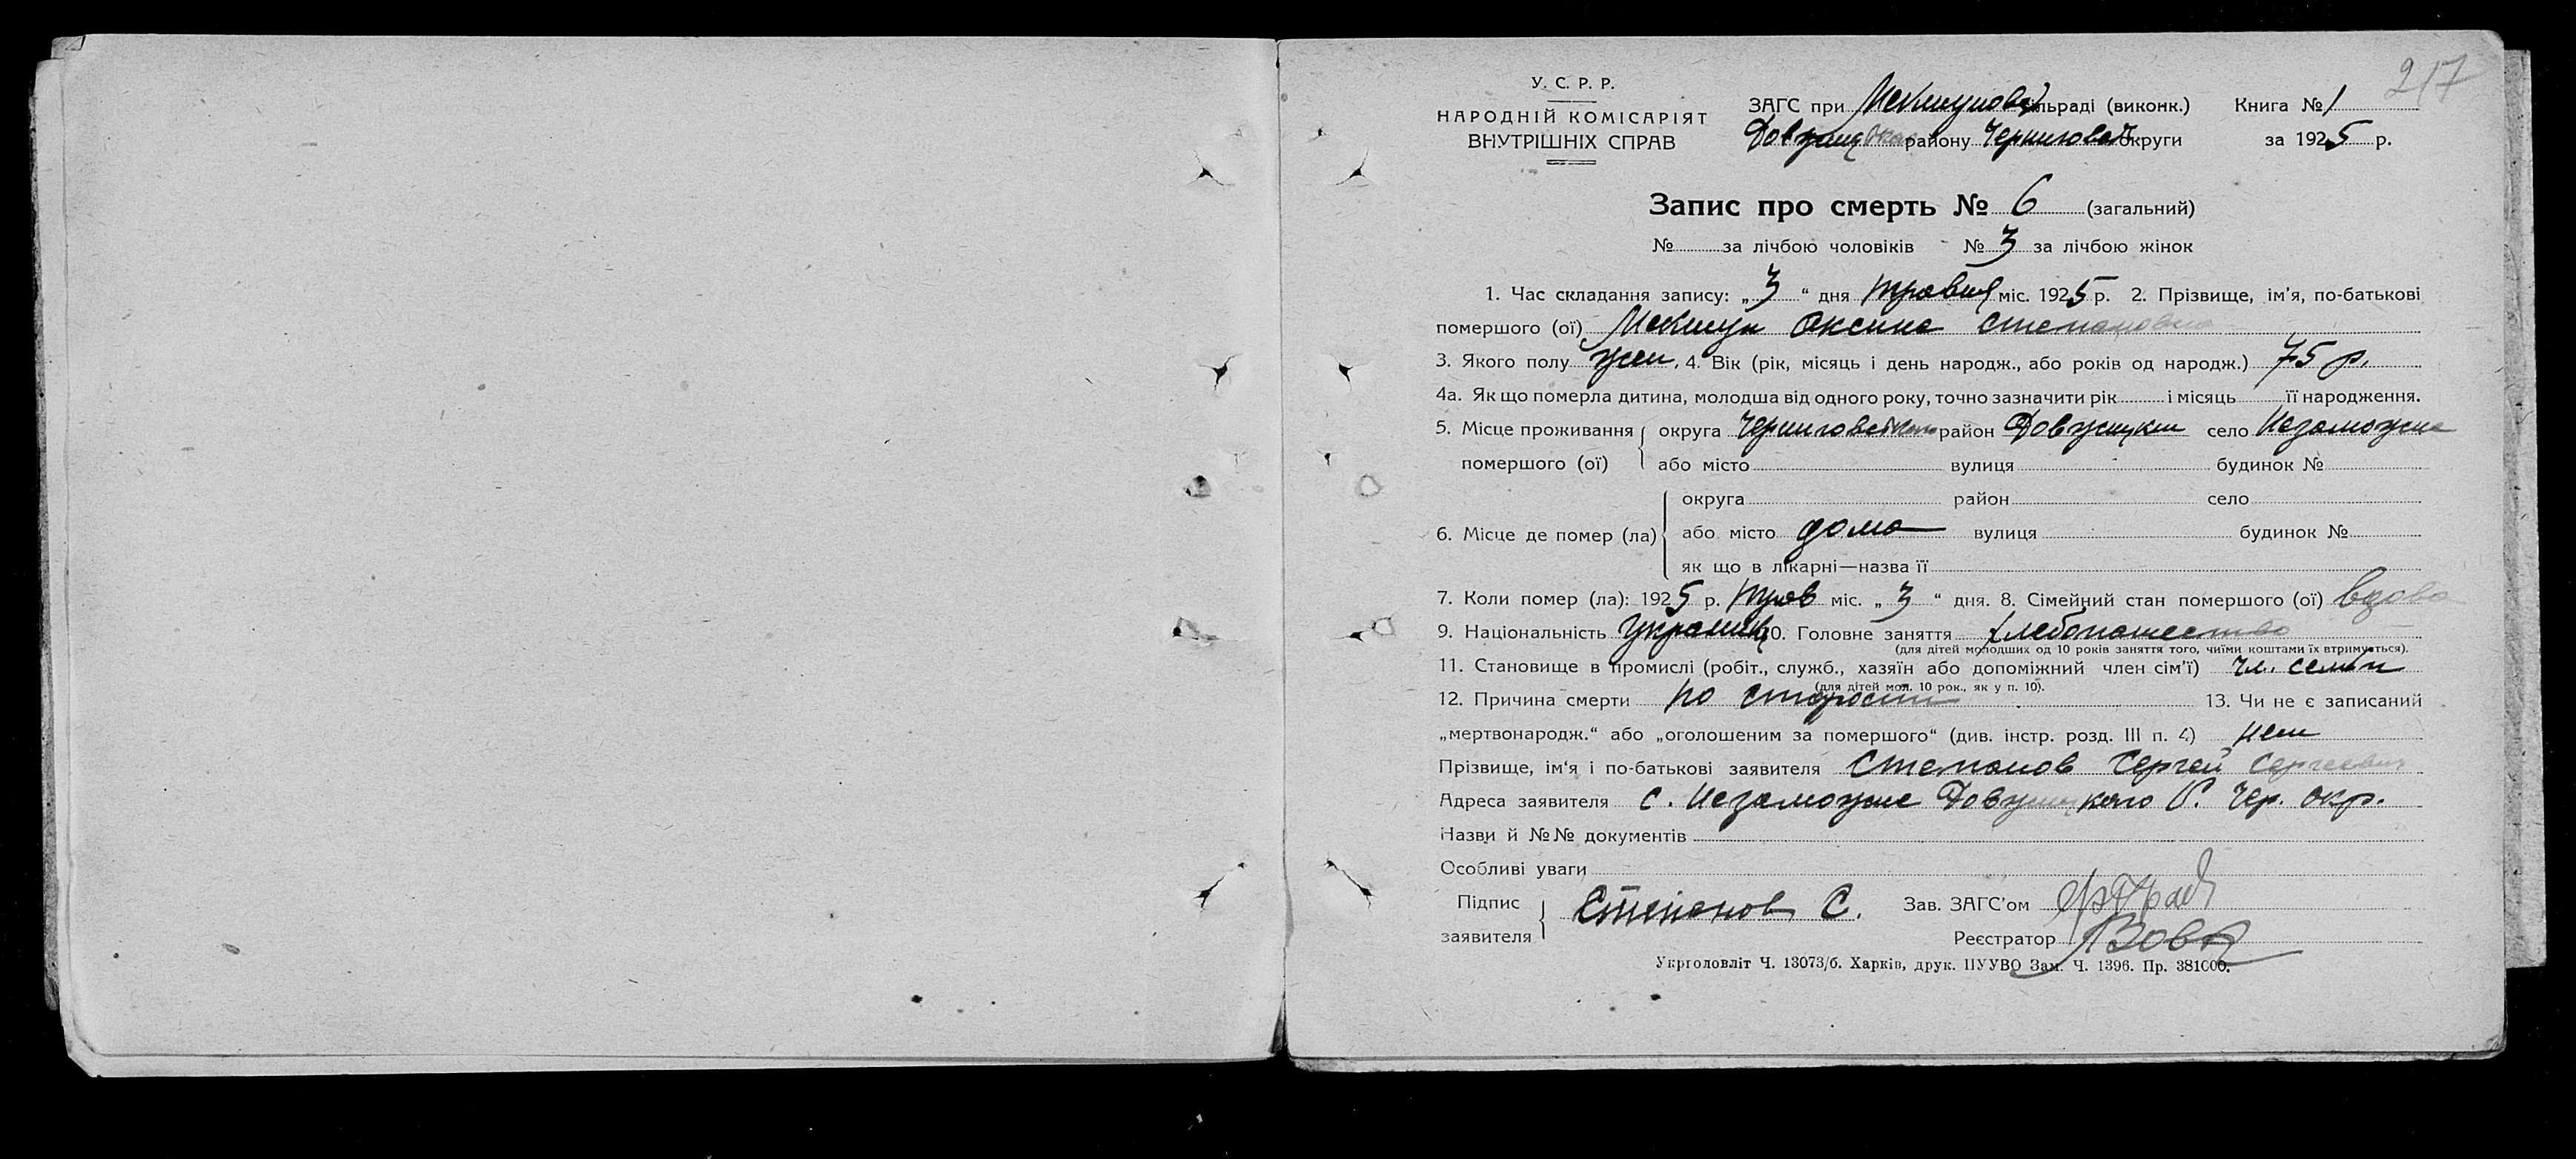 217
У. С. Р. Р.
НАРОДНІЙ КОМІСАРІЯТ
ВНУТРІШНІХ СПРАВ
ЗАГС при сільраді (виконк.) Книга № 1
району Черниговск округи за 1925 р.
Запис про смерть № 6 (загальний)
№ за лічбою чоловіків № 3 за лічбою жінок
1. Час складання запису: „3“ дня травня міс. 1925 р. 2. Прізвище, ім’я, по-батькові
помершого (ої) Оксина Степановна
3. Якого полу жен. 4. Вік (рік, місяць і день народж., або років од народж.) 75 р.
4а. Як що померла дитина, молодша від одного року, точно зазначити рік і місяць її народження.
5. Місце проживання округа район село Незаможне
помершого (ої) або місто вулиця будинок №
округа район село
6. Місце де помер (ла) або місто дома вулиця будинок №
як що в лікарні—назва її
7. Коли помер (ла): 1925 р. трав міс. „3“ дня. 8. Сімейний стан помершого (ої) вдова
9. Національність 10. Головне заняття хлебопашество
(для дітей молодших од 10 років заняття того, чиїми коштами їх втримується).
11. Становище в промислі (робіт., служб., хазяїн або допоміжний член сім’ї) чл. семьи
(для дітей мол. 10 рок., як у п. 10).
12. Причина смерти по старости 13. Чи не є записаний
„мертвонародж.“ або „оголошеним за помершого“ (див. інстр. розд. III п. 4) нет
Прізвище, ім‘я і по-батькові заявителя Степанов Сергей Сергеевич
Адреса заявителя с. Незаможне Р. Чер. окр.
Назви й №№ документів
Особливі уваги
Підпис
заявителя Степанов С. Зав. ЗАГС’ом
Реєстратор
Укрголовліт Ч. 13073/б. Харків, друк. ПУУВО Зам. Ч. 1396. Пр. 381000.